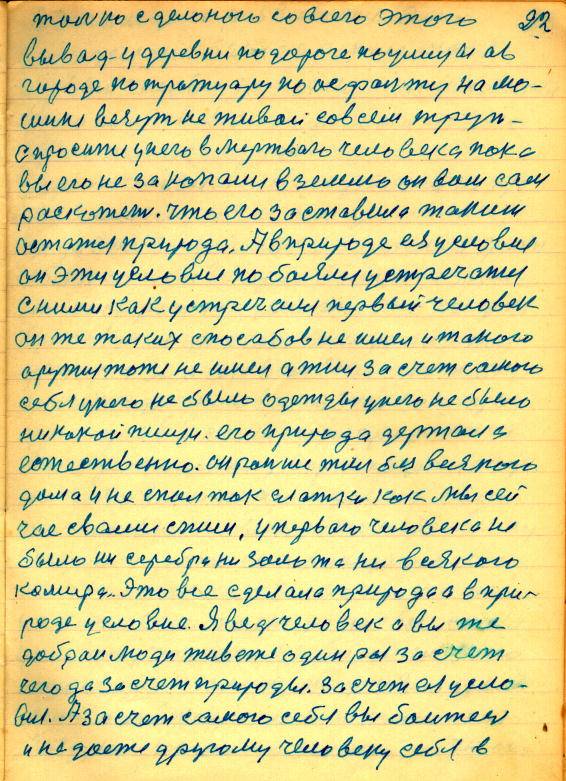 22
только сделоного со всего этого
вывад у деревни по дороге по улицы ав
городе по тратуару по асфальту на мо-
шине везут не живой совсем труп-
спросите у него в мертваго человека пока
вы его не закопали в землю он вам сам
раскожет. Что его заставила таким
остатся природа. А в природе ея условие
он эти условие побоялся устречатся
с ними как устречался первый человек
он же таких способов не имел и такого
аружия тоже не имел а жил за счет самого
себя у него не было одежды у него не было
никокой пищи. его природа держала
естественно. он ранши жил без всякого
дома и не спал так слатко как мы сей
час с вами спим, у перваго человека не
было ни серебра ни золота ни всякого
камира. Это все сделала природа а в при-
роде условие. Я ведь человек а вы же
добраи люди живете один раз за счет
чего да за счет природы. За счет ея усло-
вия. А за счет самого себя вы боитесь
и не даете другому человеку себя в